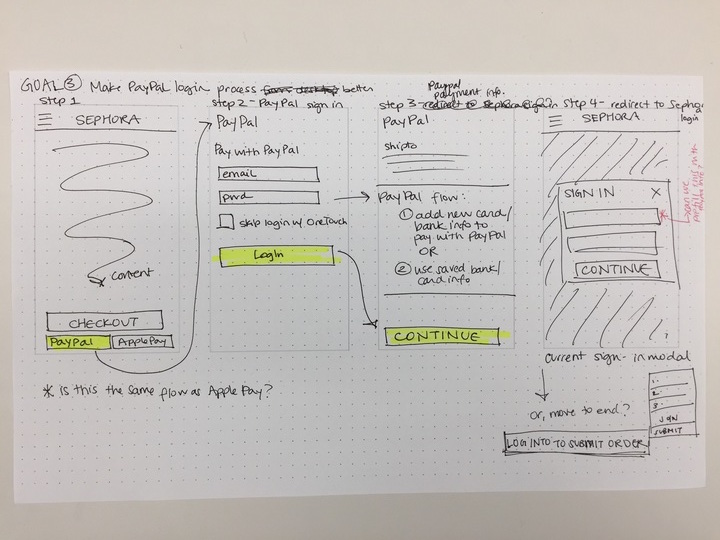 GOAL ③ Make PayPal login process better
step 1
SEPHORA
content
CHECKOUT
PayPal
Apple Pay
* is this the same flow as Apple Pay?
step 2 - PayPal sign in
PayPal
Pay with PayPal
email
pwd
skip login w/ OneTouch
LogIn
step 3 - Paypal payment info.
PayPal
shipto
PayPal flow:
① add new card/
bank info to
pay with PayPal
OR
② use saved bank/
card info
CONTINUE
step 4 - redirect to Sephora
login
SEPHORA
SIGN IN X
*
CONTINUE
can we
prefill this with
current sign-in modal
or, move to end?
LOG INTO TO SUBMIT ORDER
1.
2
3.
SIGN
SUBMIT